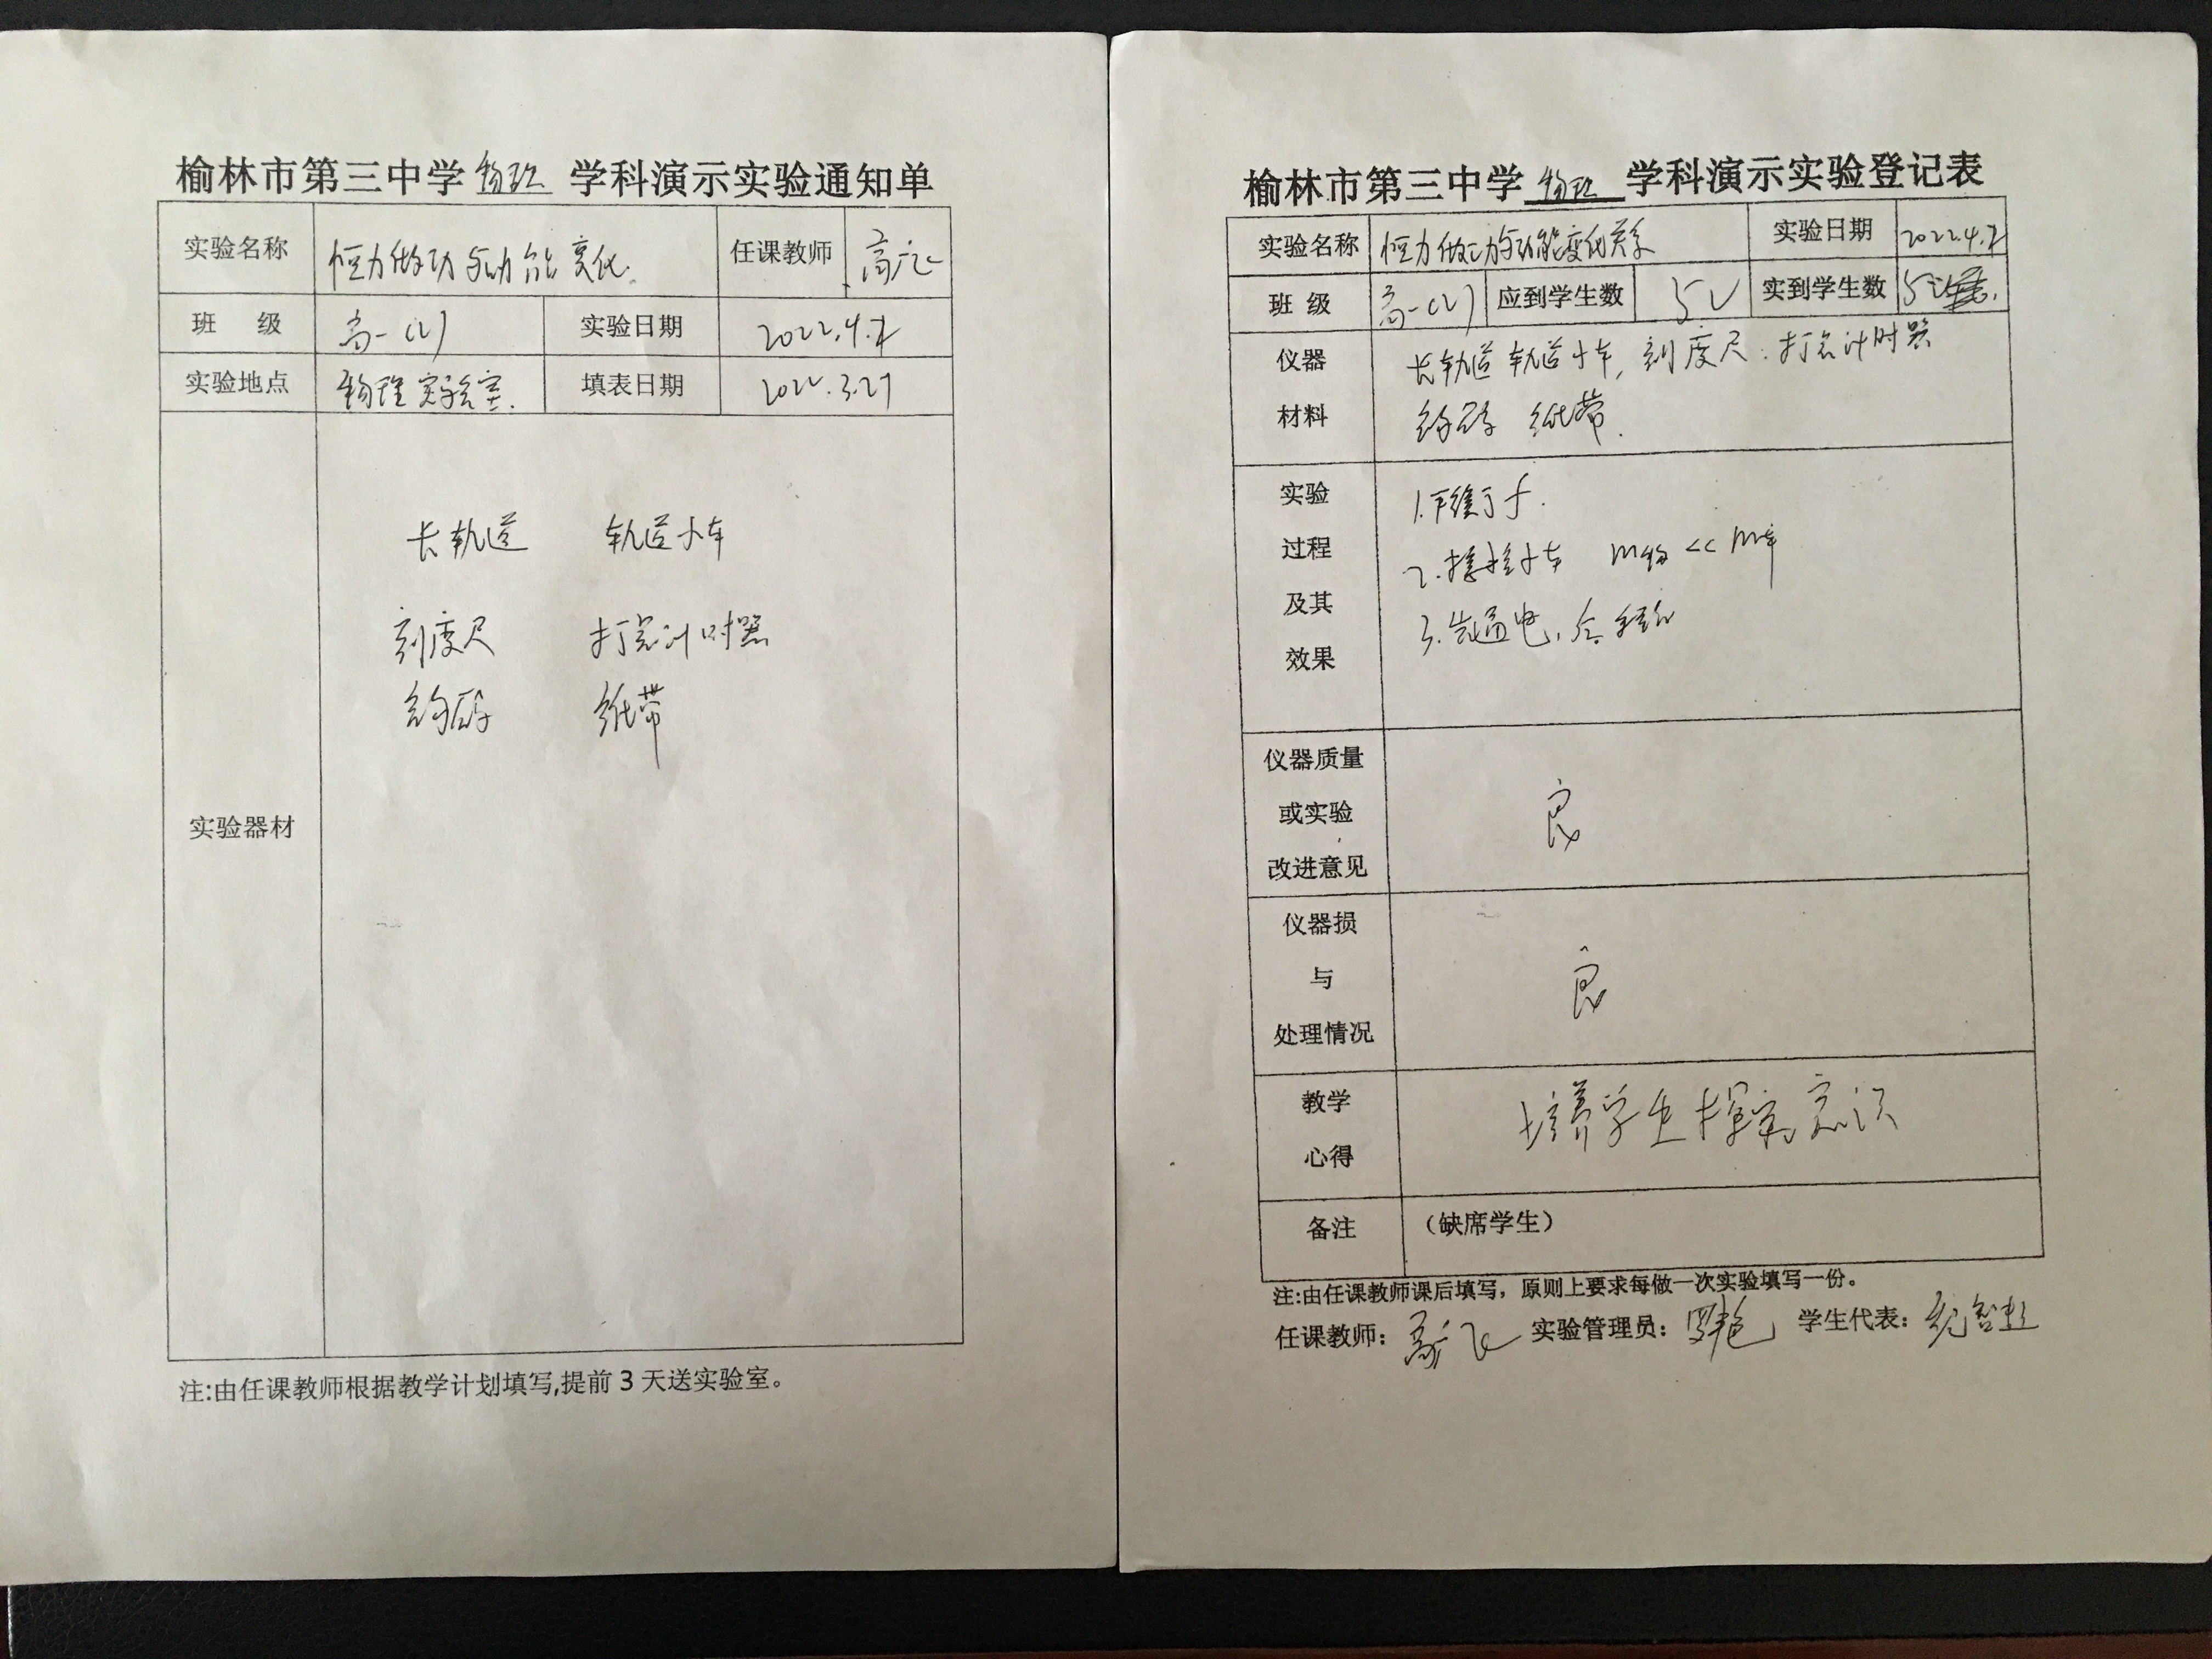 榆林市第三中学 物理 学科演示实验通知单
实验名称 恒力做功与动能变化. 任课教师 高飞
班 级 高一(2) 实验日期 2022.4.2
实验地点 物理实验室. 填表日期 2022.3.27
长轨道 轨道小车
刻度尺 打点计时器
钩码 纸带
实验器材
注:由任课教师根据教学计划填写,提前3天送实验室。
榆林市第三中学 物理 学科演示实验登记表
实验名称 恒力做功与动能变化关系 实验日期 2022.4.2
班 级 高一(2) 应到学生数 52 实到学生数 52
仪器 长轨道 轨道小车, 刻度尺. 打点计时器
材料 钩码 纸带.
实验 1.平衡了f.
过程 2. 小车 m钩 << m车
及其 3.先通电,后释放
效果
仪器质量
或实验 良
改进意见
仪器损
与 良
处理情况
教学 培养学生探究意识
心得
备注 (缺席学生)
注:由任课教师课后填写,原则上要求每做一次实验填写一份。
任课教师: 高飞 实验管理员: 学生代表: